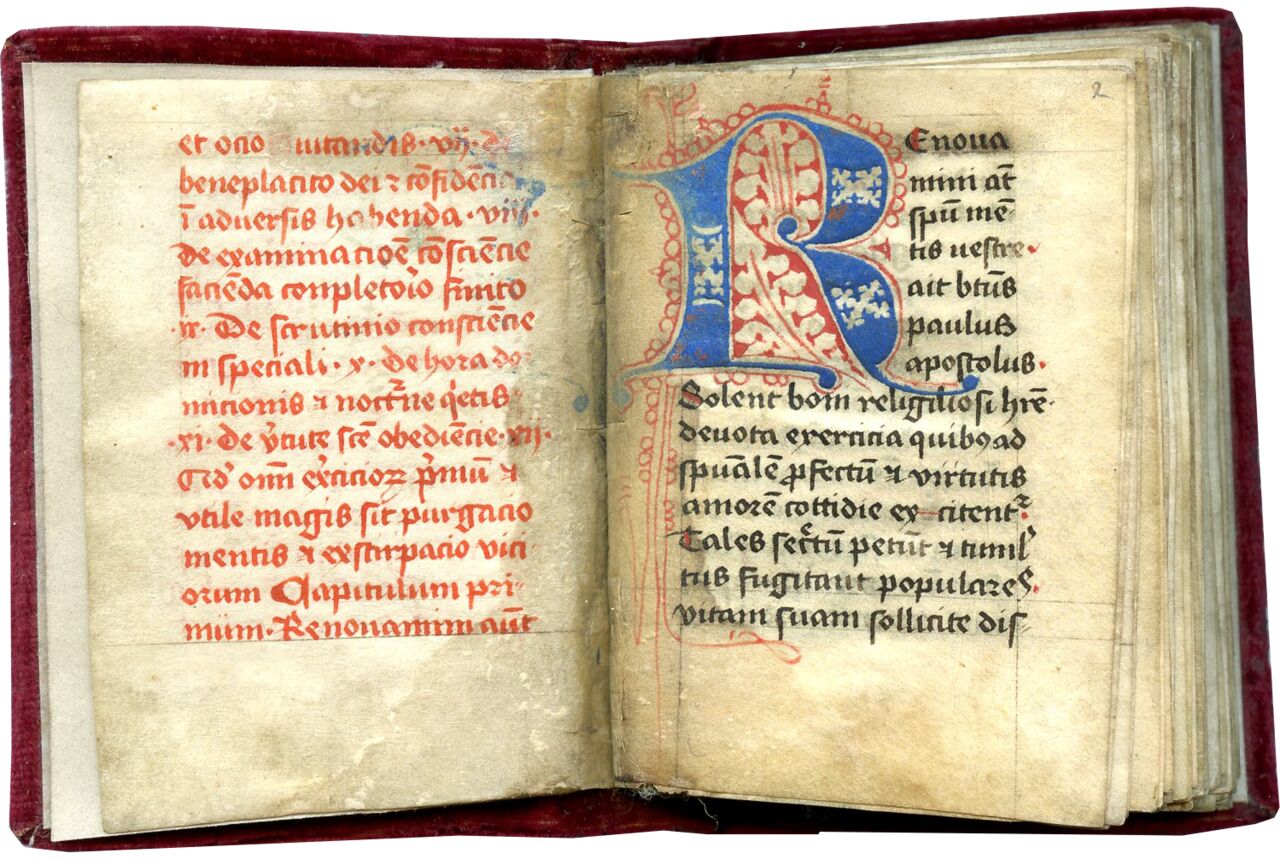 et ocio uitandis · vij · de
beneplacito dei ⁊ cōfidēcia
ī aduersis habenda · viij ·
de examinacioē cōsciēcie
faciēda conpletoīo finito
ix · De scrutinio consciēcie
in speciali · x · de hora dor
micionis ⁊ noct'ne q'etis
· xi · de v'tute scē obediēcie · xij ·
Qd' om̄i ex'cicioꝝ p̄miū ⁊
vtile magis sit purgacio
mentis ⁊ exstirpacio vici
orum Capitulum pri-
mum · Renouamini aūt
2
REnoua
mini aūt
spū mē-
tis uestre ·
ait btūs
paulus
apostolus ·
Solent boni religiuosi hr̄e
deuota exercicia quibꝯ ad
spūalē ꝓfectū ⁊ virtutis
amorē cottidie ex-citent'
Tales sec'tū petūt ⁊ tumul
tus fugitant populares ·
vitam suam sollicite dis-